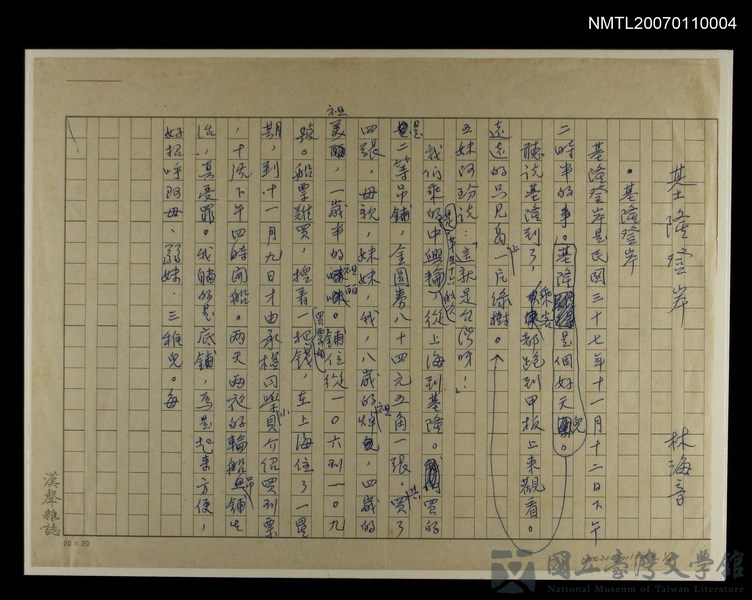 NMTL20070110004
基隆登岸
林海音
•基隆登岸
基隆登岸是民國三十七年十一月十二日下午
二時半的事。基隆是個好天兒。
聽說基隆到了,乘客都跑到甲板上來觀看。
遠遠的只見島上一片綠樹。
五妹阿玢說:「這就是台灣呀!」
我們乘的中興輪,從上海到基隆。買的
是二等吊鋪,金圓券八十四元五角一張,共買了
四張,母親,妹妹,我,八歲的祖,四歲的
祖美,一歲半的祖麗。鋪位從一〇六到一〇九
號。船票難買,揑着一把錢,在上海住了一星
期,到十一月九日才由承楹同學介紹買到票
,十流下午四時開船。兩天兩夜的輪船吊鋪生
活,真受罪。我鋪的是底鋪,為是起來方便,
好招呼阿母、弱妹、三稚兒。每
漢聲雜誌
20×20
國立臺灣文學館
National Museum of Taiwan Literature